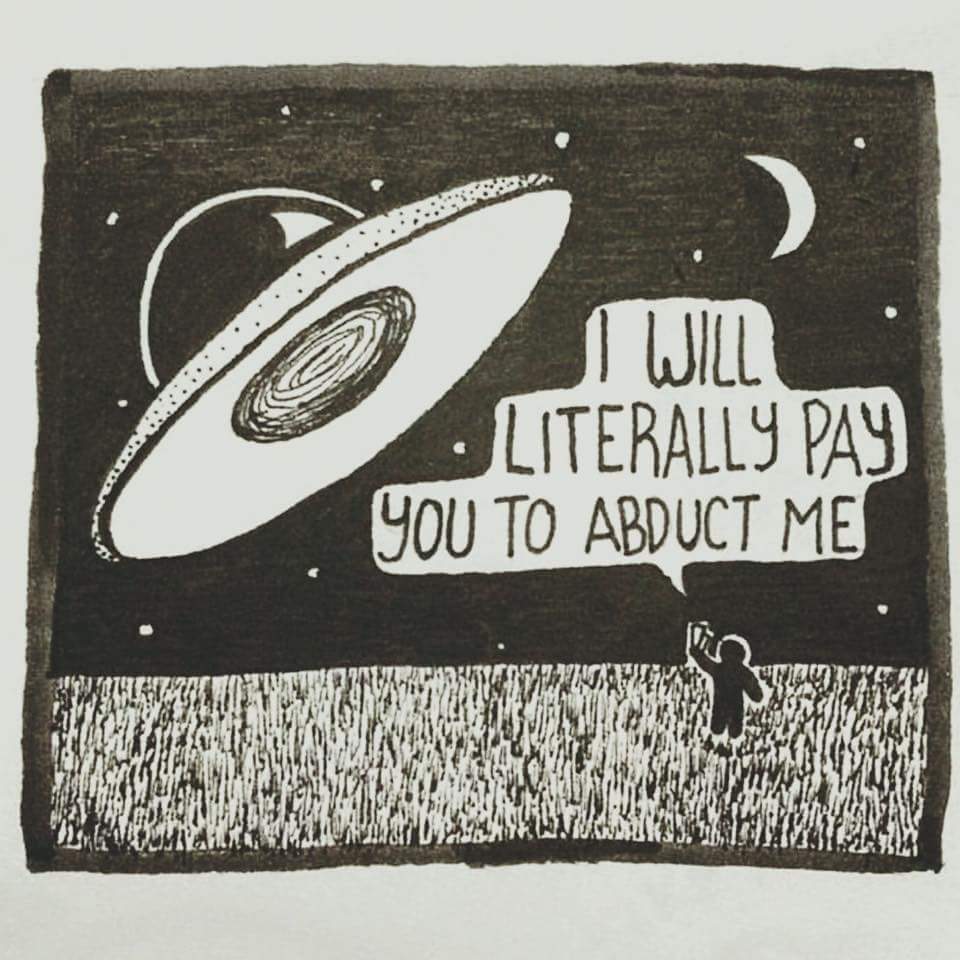 I WILL
LITERALLY PAY
YOU TO ABDUCT ME